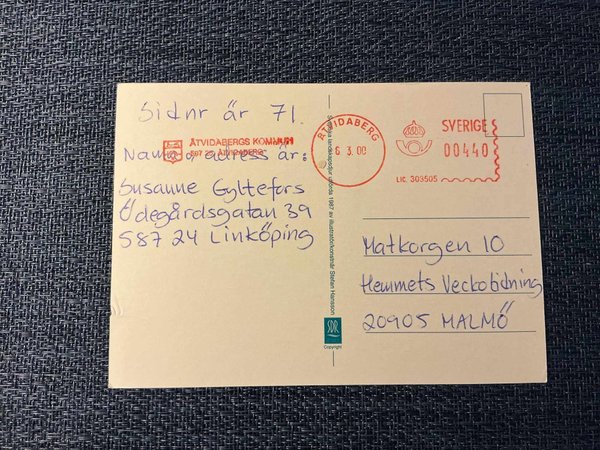 Sidnr är 71.
ÅTVIDABERGS KOMMUN
597 25 ÅTVIDABERG
Namn adress är:
Susanne Gyltefors
Ödegårdsgatan 39
587 24 Linköping
Svenska landskapsdjur utförda 1987 av illustratör/konstnär Staffan Hansson
SDR
Copyright
ÅTVIDABERG
6 3.00
SVERIGE
00440
LIC. 303505
Matkorgen 10
Hemmets Veckotidning
20905 MALMÖ